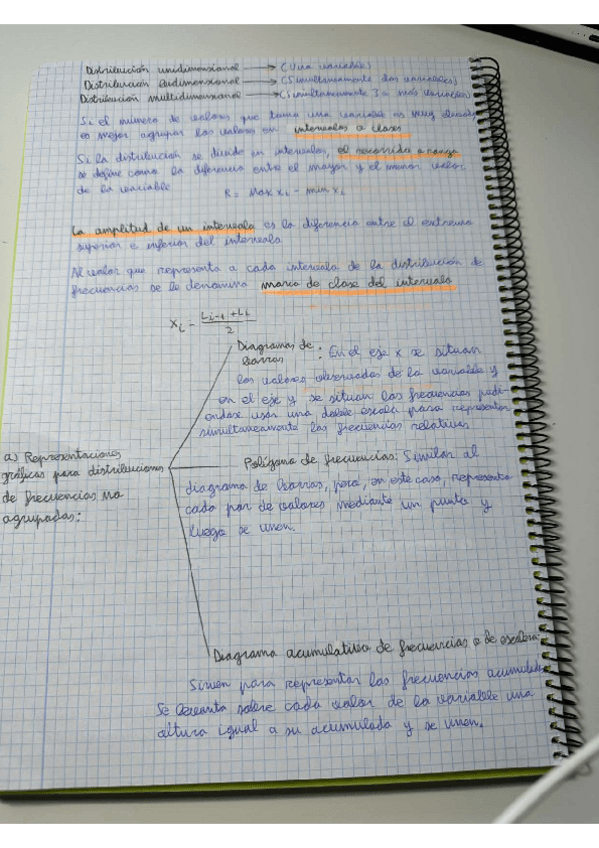 Distribución unidimensional → (Una variable)
Distribución bidimensional → (Simultáneamente dos variables)
Distribución multidimensional → (Simultáneamente 3 o más variables)
Si el número de valores que toma una variable es muy elevado
es mejor agrupar los valores en intervalos o clases
Si la distribución se divide en intervalos, el recorrido o rango
se define como la diferencia entre el mayor y el menor valor
de la variable R = Max xi - min xi
La amplitud de un intervalo es la diferencia entre el extremo
superior e inferior del intervalo
Al valor que representa a cada intervalo de la distribución de
frecuencias se le denomina marca de clase del intervalo
xi = (Li-1 + Li) / 2
a) Representaciones
gráficas para distribuciones
de frecuencias no
agrupadas:
Diagramas de
barras : En el eje x se sitúan
los valores observados de la variable y
en el eje y se sitúan las frecuencias pudi-
éndose usar una doble escala para representar
simultáneamente las frecuencias relativas
Polígono de frecuencias: Similar al
diagrama de barras, pero, en este caso, representa
cada par de valores mediante un punto y
luego se unen.
Diagrama acumulativo de frecuencias o de escalera:
Sirven para representar las frecuencias acumuladas
Se levanta sobre cada valor de la variable una
altura igual a su acumulada y se unen.